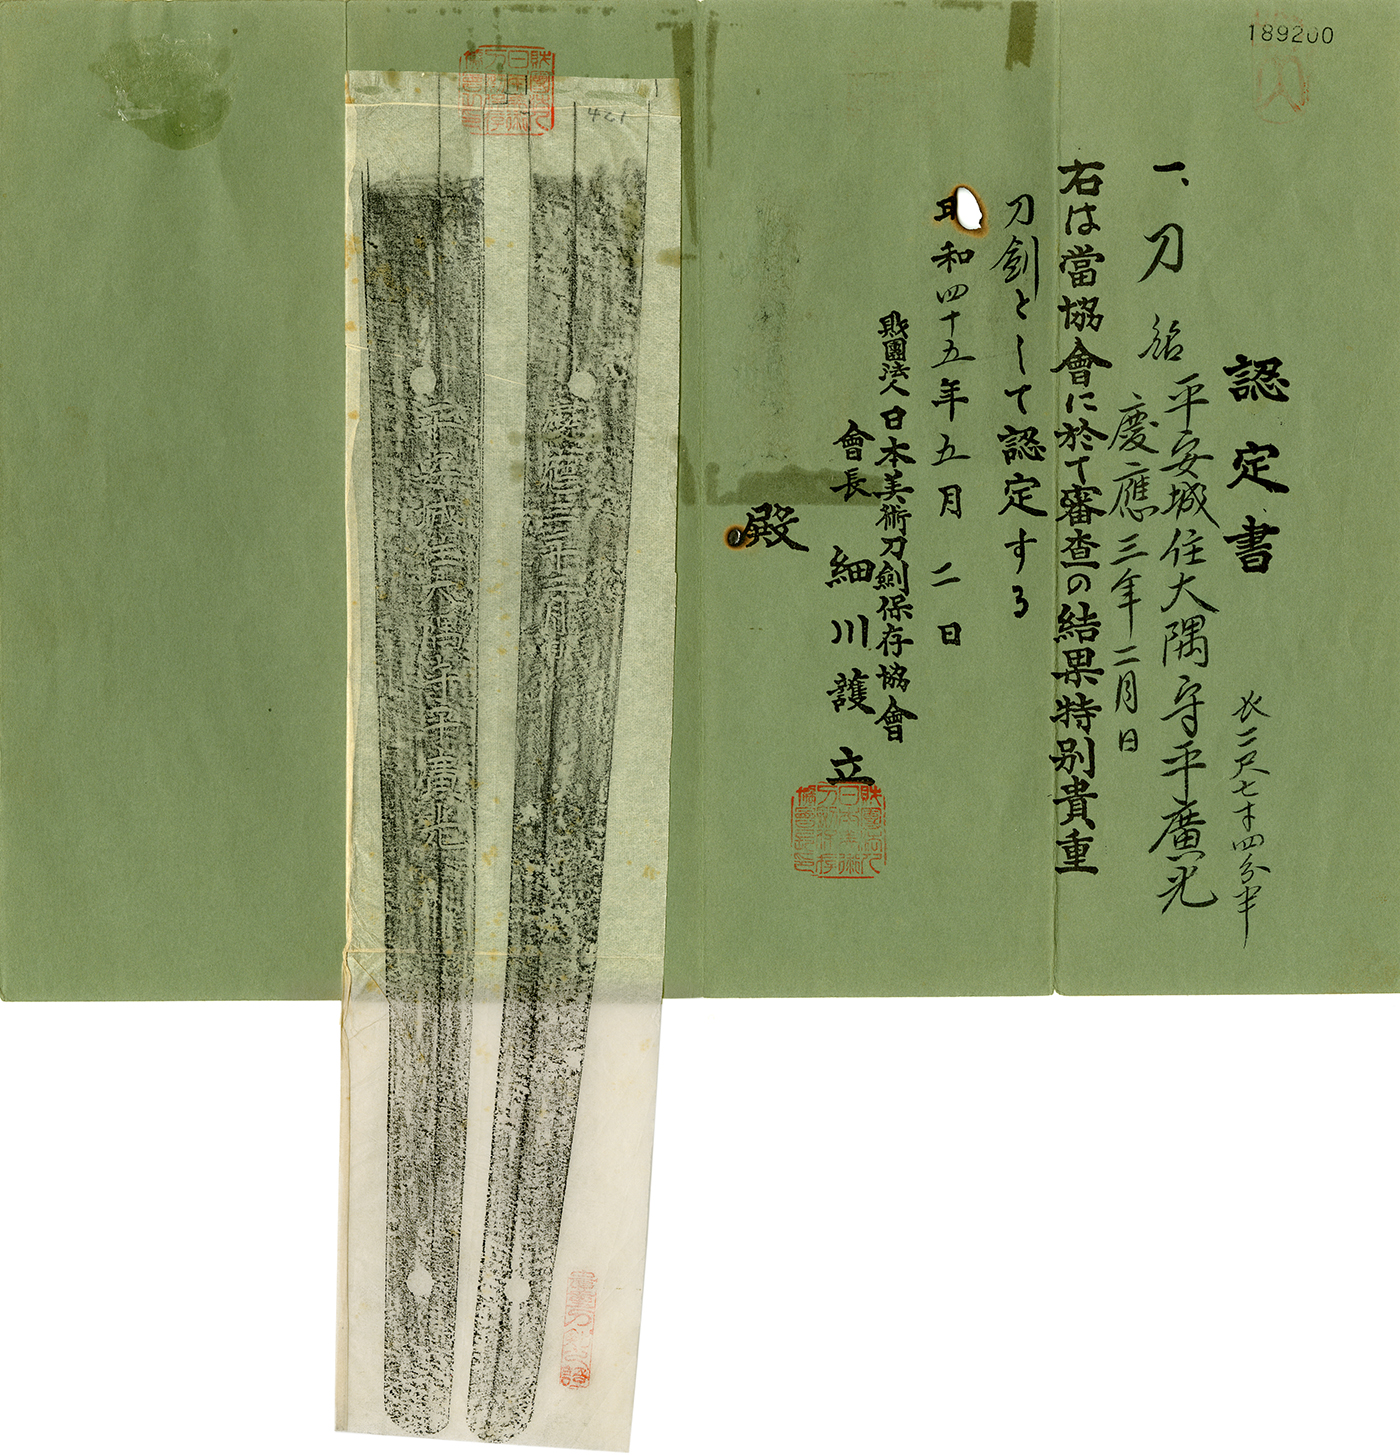 189200
認定書
長二尺七寸四分半
一、刀 銘 平安城住大隅守平廣光
慶應三年二月日
右は當協會に於て審査の結果特別貴重
刀劍として認定する
昭和四十五年五月二日
財團法人日本美術刀劍保存協會
會長 細川護立
殿
421
慶應三年二月日
平安城住大隅守平廣光